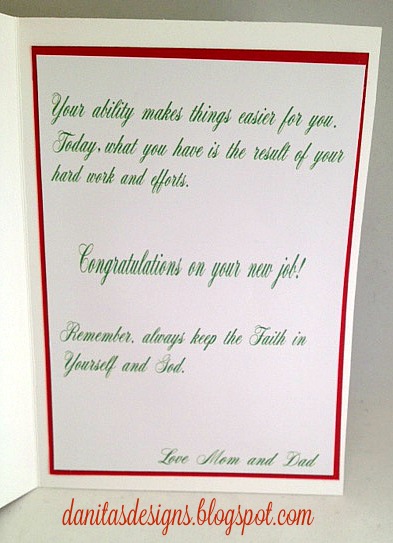 Your ability makes things easier for you.
Today, what you have is the result of your
hard work and efforts.
Congratulations on your new job!
Remember, always keep the Faith in
Yourself and God.
Love Mom and Dad
danitasdesigns.blogspot.com